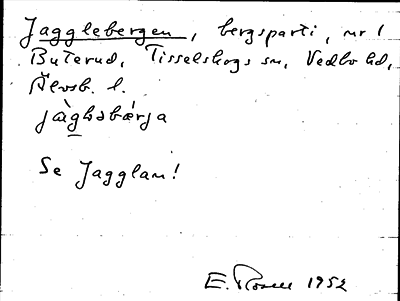 Jagglebergen, bergsparti, nr 1
Buterud, Tisselskogs sn, Vedbo hd,
Älvsb. l.
jàgləbæ̀rja
Se Jagglan!
E. Rosell 1952